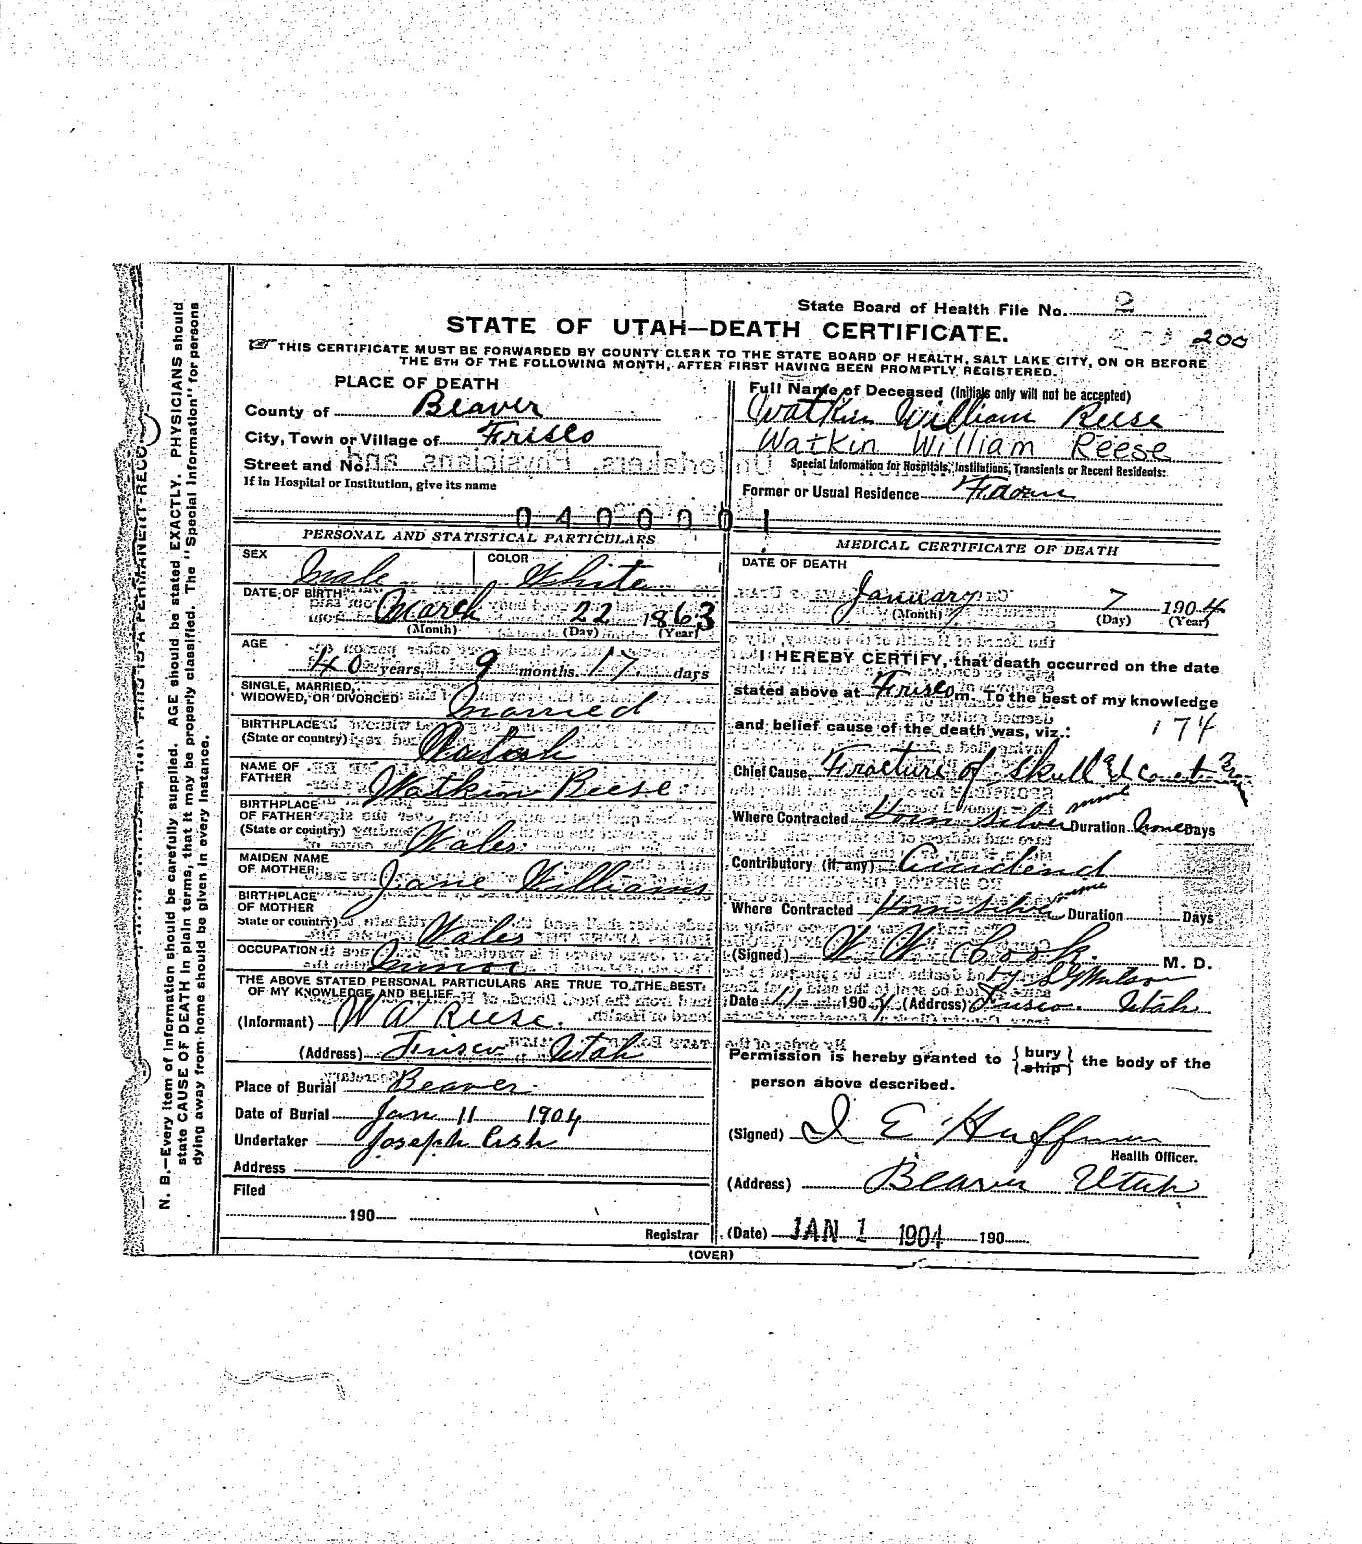 State Board of Health File No. 2
200
STATE OF UTAH—DEATH CERTIFICATE.
THIS CERTIFICATE MUST BE FORWARDED BY COUNTY CLERK TO THE STATE BOARD OF HEALTH, SALT LAKE CITY, ON OR BEFORE
THE 5TH OF THE FOLLOWING MONTH, AFTER FIRST HAVING BEEN PROMPTLY REGISTERED.
PLACE OF DEATH
County of Beaver
City, Town or Village of Frisco
Street and No.
If in Hospital or Institution, give its name
Full Name of Deceased (Initials only will not be accepted)
Watkin William Reese
Watkin William Reese
Special Information for Hospitals, Institutions, Transients or Recent Residents:
Former or Usual Residence
0400001
PERSONAL AND STATISTICAL PARTICULARS
SEX Male COLOR White
DATE OF BIRTH March 22 1863
(Month) (Day) (Year)
AGE 40 years, 9 months 17 days
SINGLE, MARRIED,
WIDOWED, OR DIVORCED Married
BIRTHPLACE
(State or country) Utah
NAME OF
FATHER Watkin Reese
BIRTHPLACE
OF FATHER
(State or country) Wales
MAIDEN NAME
OF MOTHER Jane Williams
BIRTHPLACE
OF MOTHER
State or country) Wales
OCCUPATION Miner
THE ABOVE STATED PERSONAL PARTICULARS ARE TRUE TO THE BEST
OF MY KNOWLEDGE AND BELIEF
(Informant) W W Reese.
(Address) Frisco, Utah
Place of Burial Beaver
Date of Burial Jan 11 1904
Undertaker Joseph
Address
Filed
190
Registrar
MEDICAL CERTIFICATE OF DEATH
DATE OF DEATH
January 7 1904
(Month) (Day) (Year)
I HEREBY CERTIFY, that death occurred on the date
stated above at Frisco m. To the best of my knowledge
and belief cause of the death was, viz.: 174
Chief Cause Fracture of Skull
Where Contracted Horn Silver mine Duration Days
Contributory (if any) Accident
Where Contracted Horn Silver mine Duration Days
(Signed) W W Cook. M. D.
by
Date 11 190 4 (Address) Frisco. Utah
Permission is hereby granted to {bury ship} the body of the
person above described.
(Signed) I E Huffman
Health Officer.
(Address) Beaver Utah
(Date) JAN 1 1904 190
(OVER)
N. B.—Every item of information should be carefully supplied. AGE should be stated EXACTLY. PHYSICIANS should
state CAUSE OF DEATH in plain terms, that it may be properly classified. The "Special Information" for persons
dying away from home should be given in every instance.